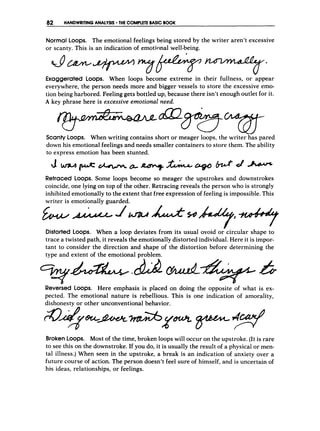 82 HANDWRITING ANALYSIS - THE COMPLETE BASIC BOOK
Normal Loops. The emotional feelings being stored by the writer aren't excessive
or scanty. This is an indication of emotional well-being.
I can enjoy my feelings normally.
Exaggerated Loops. When loops become extreme in their fullness, or appear
everywhere, the person needs more and bigger vessels to store the excessive emo-
tion being harbored. Feeling gets bottled up, because there isn't enough outlet for it.
A key phrase here is excessive emotional need.
My emotions are all going crazy
Scanty Loops. When writing contains short or meager loops, the writer has pared
down his emotional feelings and needs smaller containers to store them. The ability
to express emotion has been stunted.
I was put down a long time ago but I
Retraced Loops. Some loops become so meager the upstrokes and downstrokes
coincide, one lying on top of the other. Retracing reveals the person who is strongly
inhibited emotionally to the extent that free expression of feeling is impossible. This
writer is emotionally guarded.
Ever since I was hurt so badly, nobody
Distorted Loops. When a loop deviates from its usual ovoid or circular shape to
trace a twisted path, it reveals the emotionally distorted individual. Here it is impor-
tant to consider the direction and shape of the distortion before determining the
type and extent of the emotional problem.
My brother did cruel things to
Reversed Loops. Here emphasis is placed on doing the opposite of what is ex-
pected. The emotional nature is rebellious. This is one indication of amorality,
dishonesty or other unconventional behavior.
Did you ever your
Broken Loops. Most of the time, broken loops will occur on the upstroke. (It is rare
to see this on the downstroke. If you do, it is usually the result of a physical or men-
tal illness.) When seen in the upstroke, a break is an indication of anxiety over a
future course of action. The person doesn't feel sure of himself, and is uncertain of
his ideas, relationships, or feelings.